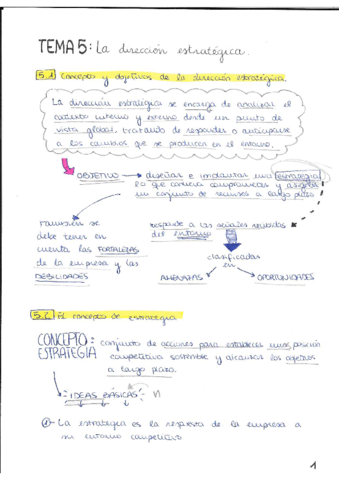 TEMA 5: La dirección estratégica.
5.1 Conceptos y objetivos de la dirección estratégica.
La dirección estratégica se encarga de analizar el
contexto interno y externo desde un punto de
vista global, tratando de responder o anticiparse
a los cambios que se producen en el entorno.
OBJETIVO → diseñar e implantar una estrategia
lo que conlleva compromisos y asignar
un conjunto de recursos a largo plazo
También se
debe tener en
cuenta las FORTALEZAS
de la empresa y las
DEBILIDADES
responde a las señales
del entorno
clasificadas
en
AMENAZAS
OPORTUNIDADES
5.2 El concepto de estrategia
CONCEPTO
ESTRATEGIA : conjunto de acciones para establecer una posición
competitiva sostenible y alcanzar los objetivos
a largo plazo.
IDEAS BÁSICAS
1- La estrategia es la respuesta de la empresa a
su entorno competitivo
1